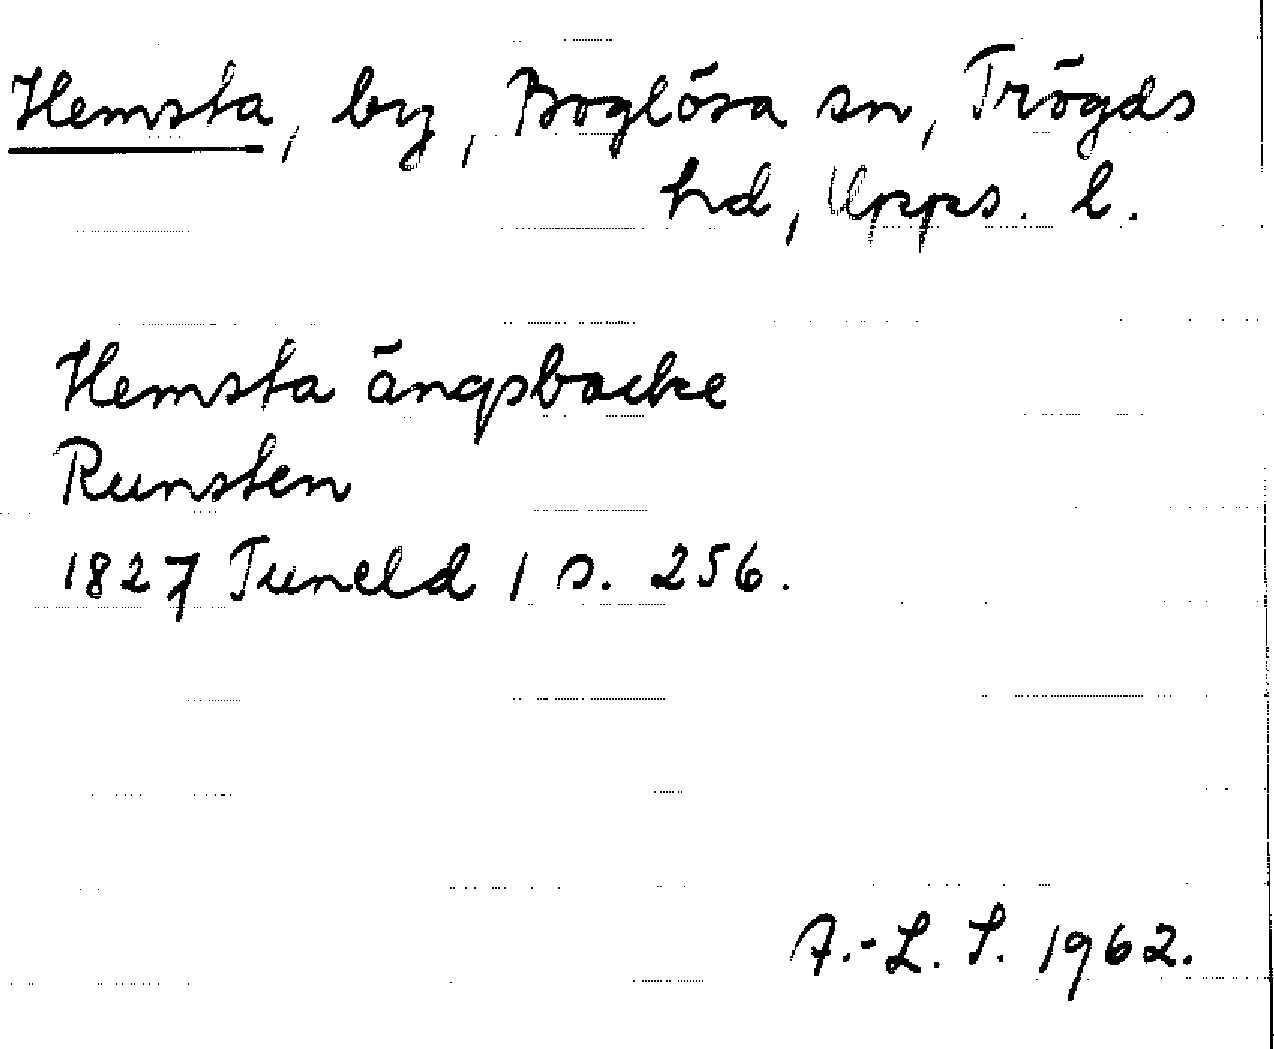 Hemsta, by, Boglösa sn, Trögds
hd, Upps. l.
Hemsta ängsbacke
Runsten
1827 Tuneld 1 s. 256.
A.-L. S. 1962.